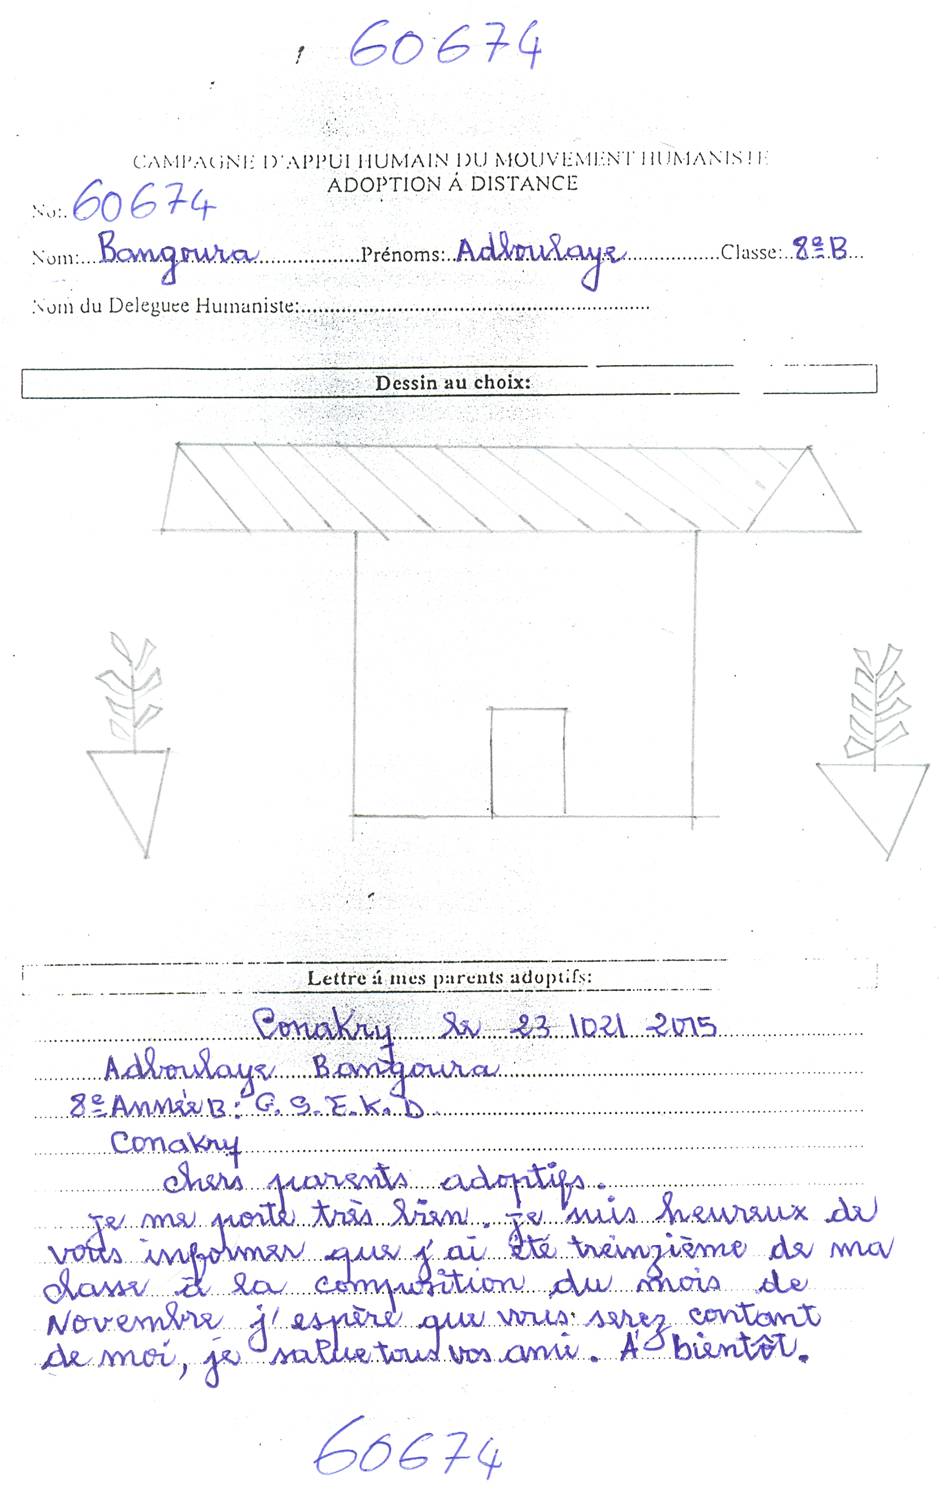 60674
CAMPAGNE D'APPUI HUMAIN DU MOUVEMENT HUMANISTE
ADOPTION Á DISTANCE
No: 60674
Nom: Bangoura Prénoms: Adboulaye Classe: 8e B
Nom du Deleguee Humaniste:
Dessin au choix:
Lettre á mes parents adoptifs:
Conakry le 23 1021 2015
Adboulaye Bangoura
8e Année B: G. S. E. K. D
Conakry
chers parents adoptifs.
je me porte très bien. je suis heureux de
vous informer que j'ai été treinzième de ma
classe à la composition du mois de
Novembre j'espère que vous serez contant
de moi, je salue tous vos ami. A bientôt.
60674